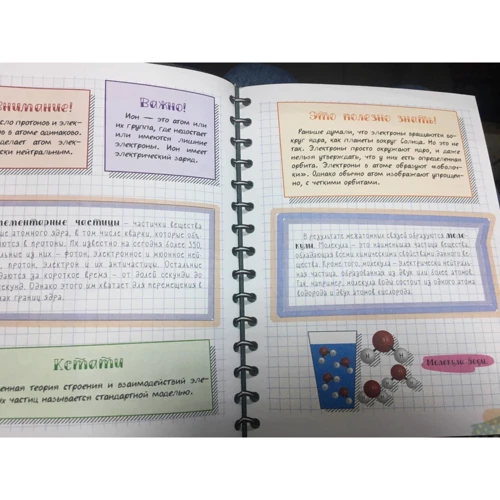 Внимание!
сло протонов и элек-
в в атоме одинаково.
делает атом элек-
ски нейтральным.
Важно!
Ион — это атом или
их группа, где недостает
или имеются лишние
электроны. Ион имеет
электрический заряд.
лементарные частицы – частички вещества
ше атомного ядра, в том числе кварки, которые объ-
ются в протоны. Их известно на сегодня более 350,
льные из них – фотон, электронное и мюонное ней-
, протон, электрон и их античастицы. Остальные
за короткое время – от долей секунды до
секунд. Однако этого им хватает для перемещения в
лах границ ядра.
Кстати
енная теория строения и взаимодействий эле-
х частиц называется стандартной моделью.
Это полезно знать!
Раньше думали, что электроны вращаются во-
круг ядра, как планеты вокруг Солнца. Но это не
так. Электроны просто окружают ядро, и даже
нельзя утверждать, что у них есть определенная
орбита. Электроны в атоме образуют «оболоч-
ки». Однако обычно атом изображают упрощен-
но, с четкими орбитами.
В результате межатомных связей образуются моле-
кулы. Молекула – это наименьшая частица вещества,
обладающая всеми химическими свойствами данного ве-
щества. Кроме того, молекула – электрически нейтраль-
ная частица, образованная из двух или более атомов.
Так, например, молекула воды состоит из одного атома
водорода и двух атомов кислорода.
Молекула воды